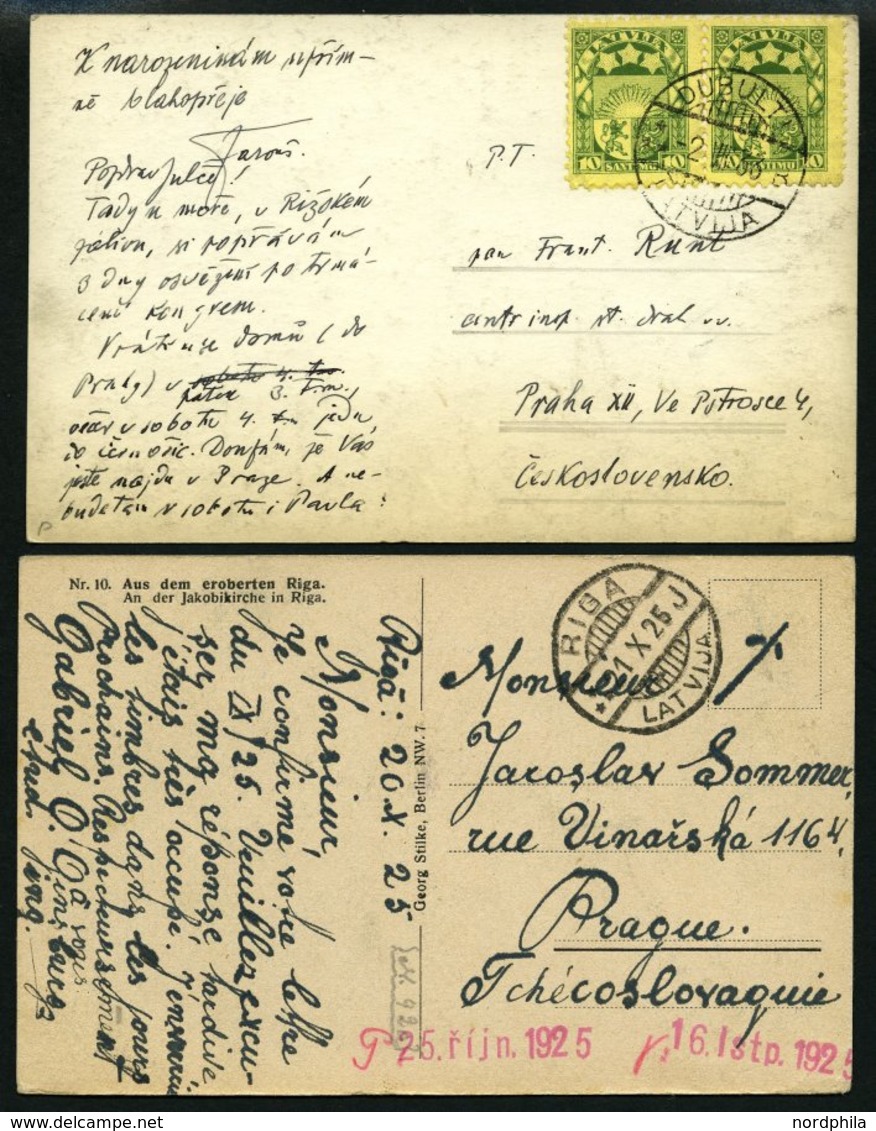 K narozeninám upřím-
ně blahopřeje
Jarouš.
Pozdrav Julče!
Tady u moře, v Rižském
zálivu, si popřávám
3 dny osvěžení po
cení kongrem.
Vrátím se domů (do
Prahy) v sobotu 4.
pátek 3. t.m.,
v sobotu 4. jedu
do Černošic. Doufám, že Vás
ještě najdu v Praze. A ne-
budeta v sobotu i Pavla?
P
LATVIJA
LATVIJA
10 SANTIMU 10
10 SANTIMU 10
DUBULTI
B
LATVIJA
P.T.
pan Frant. Runt
centr insp. st. drah
Praha XII, Ve Pštrosce 4,
Československo.
Nr. 10. Aus dem eroberten Riga.
An der Jakobikirche in Riga.
Rīgā: 20 X. 25
Monsieur,
Je confirme votre lettre
du IX/25. Veuillez excu-
ser ma réponse tardive
j'étais très occupé. J'enverrai
les timbres dans les jours
prochains. Respectueusement
à vous
Gabriel O. Ginsburg
stud. ing.
Georg Stilke, Berlin NW. 7
RIGA
21 X 25 J
LATVIJA
Monsieur
Jaroslav Sommer,
rue Vinařská 1164,
Prague.
Tchécoslovaquie
P 25. říjn. 1925
r. 16. lstp. 1925
nordphila